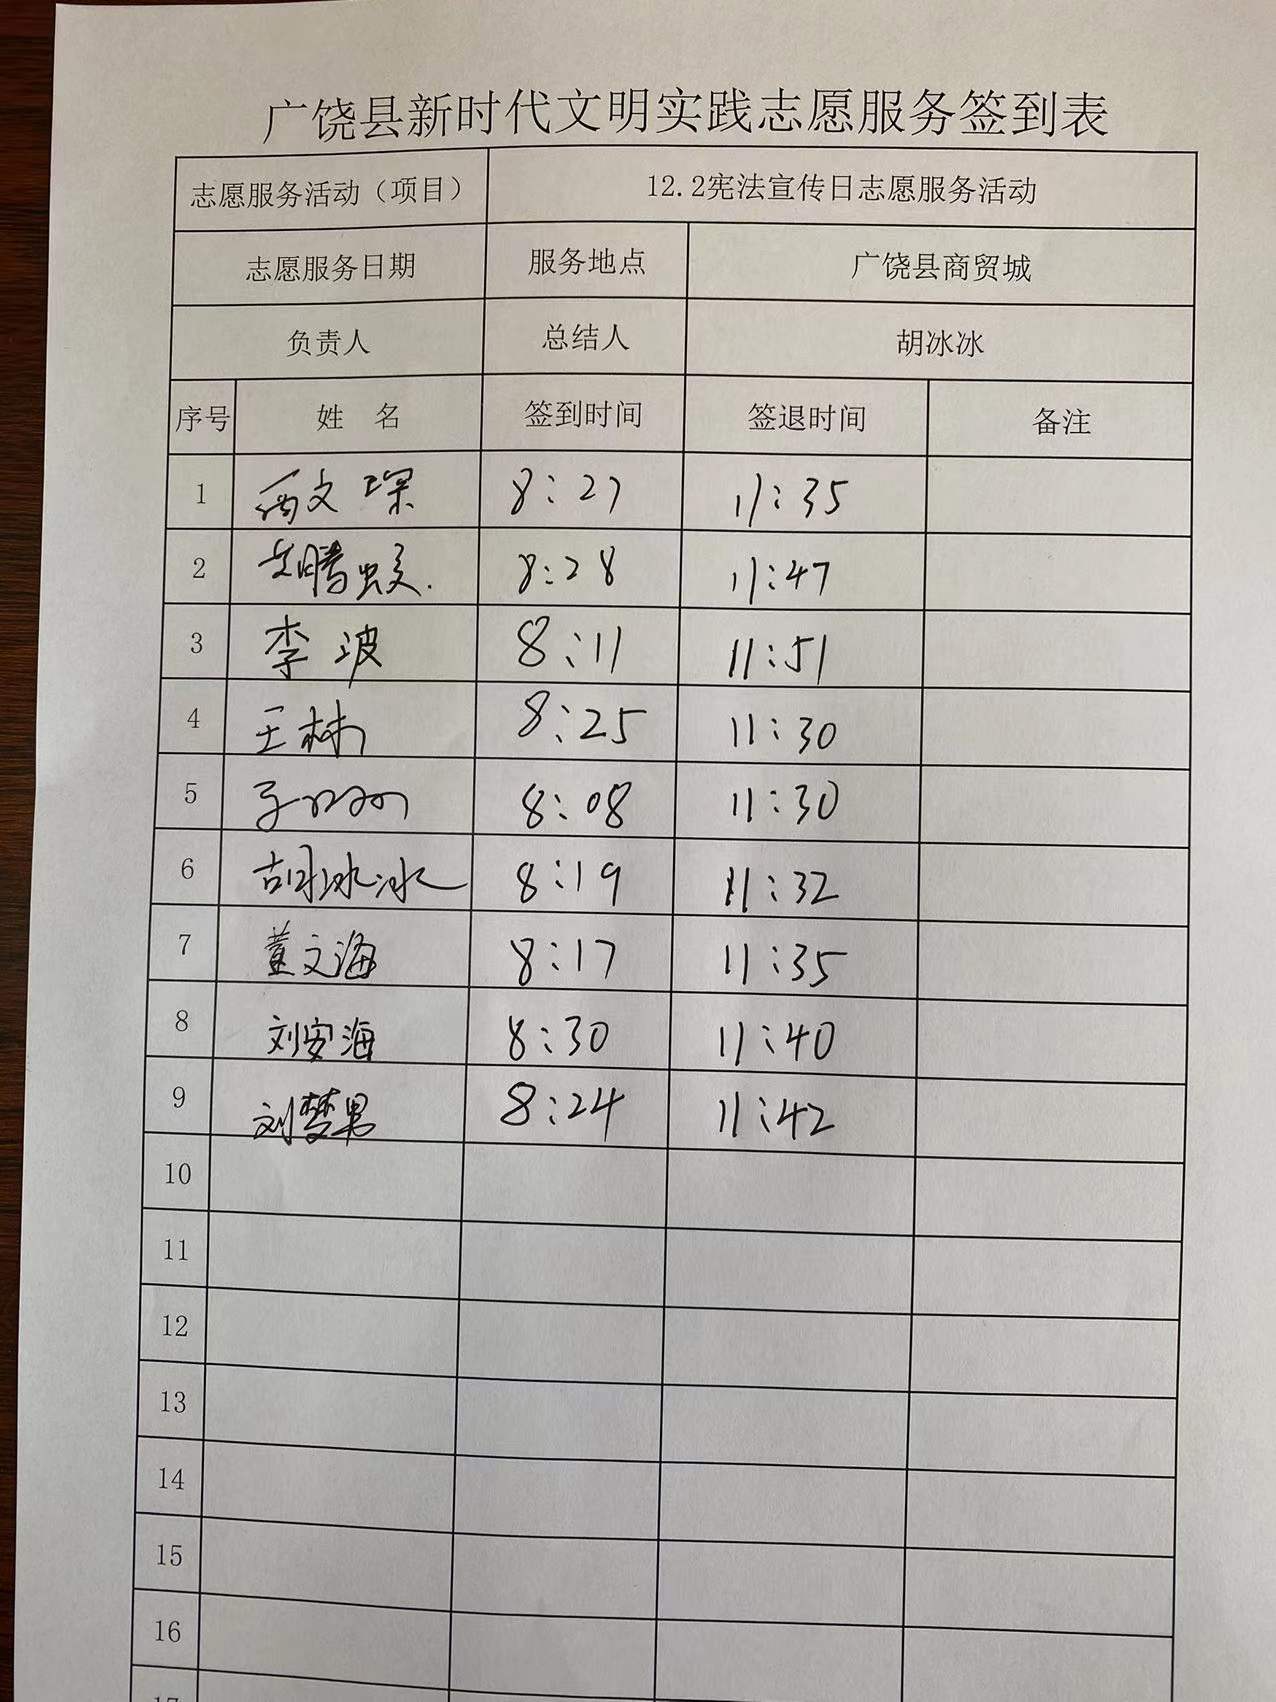 广饶县新时代文明实践志愿服务签到表
志愿服务活动（项目） 12.2宪法宣传日志愿服务活动
志愿服务日期 服务地点 广饶县商贸城
负责人 总结人 胡冰冰
序号 姓 名 签到时间 签退时间 备注
1 8:27 11:35
2 8:28 11:47
3 李波 8:11 11:51
4 王林 8:25 11:30
5 8:08 11:30
6 胡冰冰 8:19 11:32
7 董文海 8:17 11:35
8 刘安海 8:30 11:40
9 刘梦男 8:24 11:42
10
11
12
13
14
15
16
17